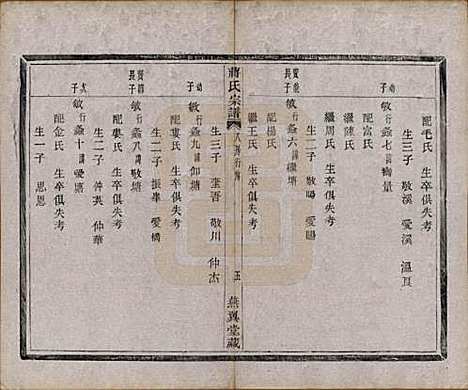 配毛氏 生卒俱失考
生三子 敬溪 愛溪 溫良
幼子 敏行蟸七諱
配富氏
繼陳氏
繼周氏 生卒俱失考
生二子 敬暘 愛暘
長子 敏行蟸六諱繼塘
配楊氏
繼王氏 生卒俱失考
生三子 奎吾 敬川 仲杰
幼子 敏行蟸九諱仰塘
配婁氏 生卒俱失考
蔣氏宗譜
五
燕翼堂藏
生二子 振華 愛橋
長子 敏行蟸八諱塘
配婁氏 生卒俱失考
生二子 仲英 仲華
次子 敏行蟸十諱愛塘
配金氏 生卒俱失考
生一子 思恩